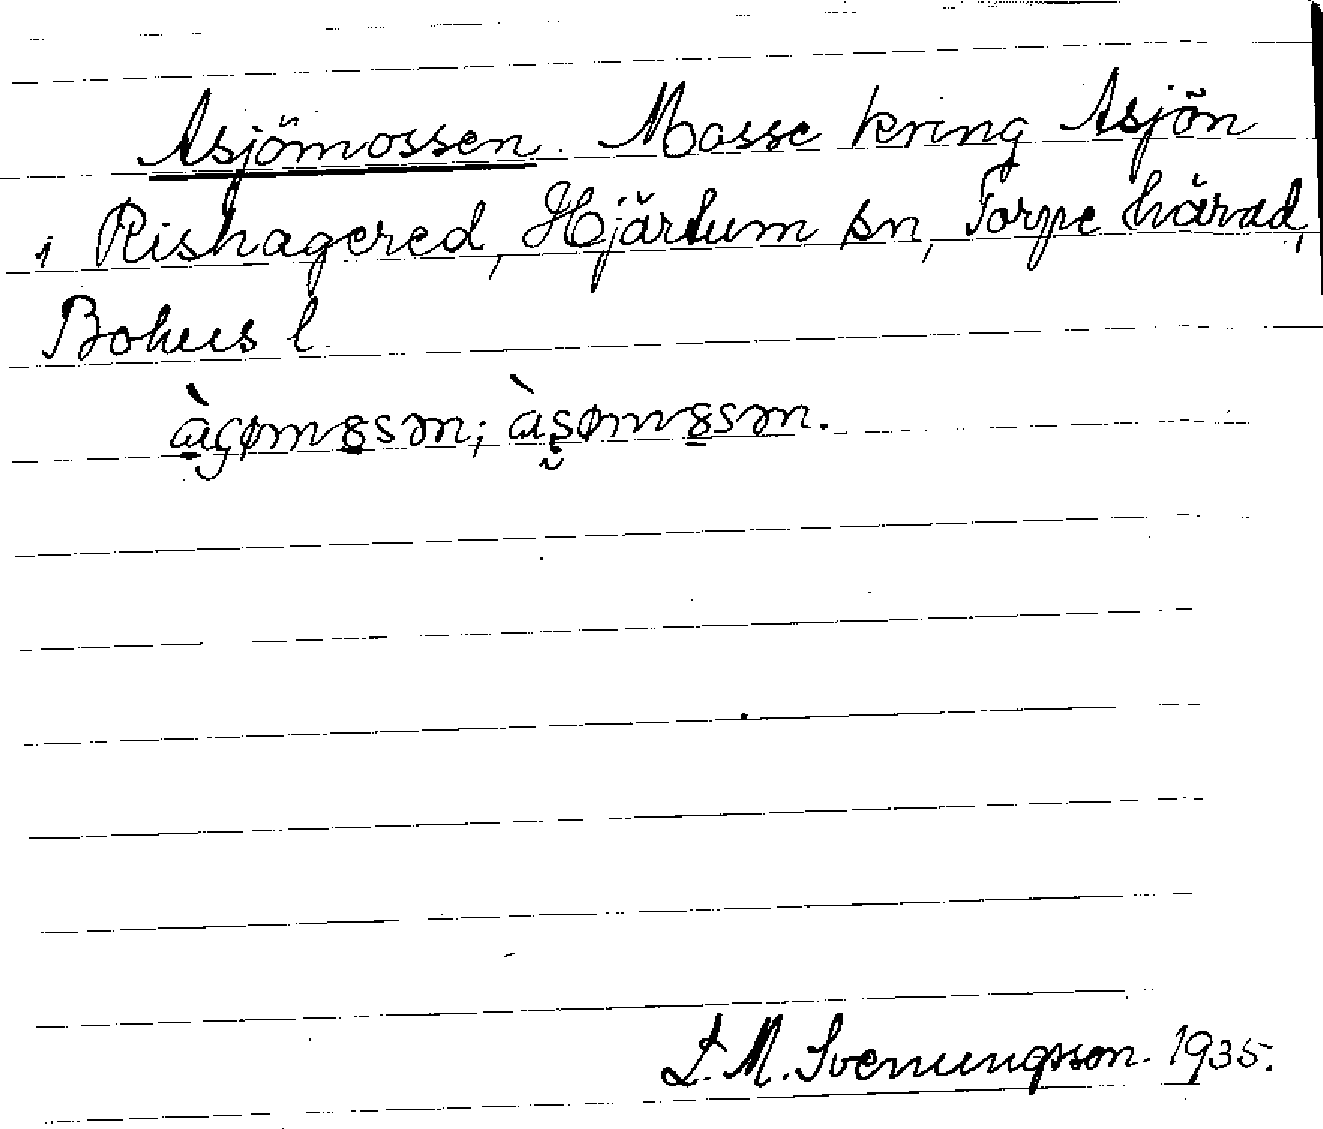 Asjömossen. Mosse kring Asjön
i Rishagered, Hjärtum sn, Torpe härad,
Bohus l.
L. M. Svenungsson. 1935.